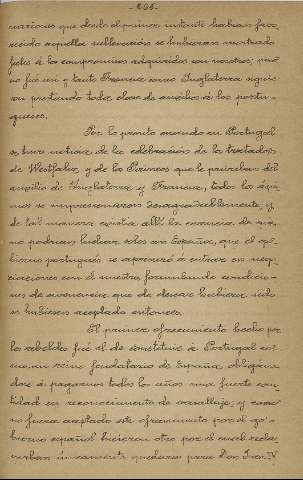 narcas que desde el primer instante habian favo-
recido aquella sublevación se hubieran mostrado
fieles á los compromisos adquiridos con nosotros; pero
no fué así y tanto Francia como Inglaterra siguie-
ron prestando toda clase de auxilios á los portu-
gueses.
Por lo pronto cuando en Portugal
se tuvo noticia de la celebración de los tratados
de Westfalia y de los Pirineos que le privaban del
auxilio de Inglaterra y Francia, todos los áni-
mos se impresionaron desagradablemente, y
de tal manera existia allí la creencia de que
no podrian luchar solos con España, que el go-
bierno portugués se apresuró á entrar en nego-
ciaciones con el nuestro, formulando condicio-
nes de avenencia que de desear hubiera sido
se hubiesen aceptado entonces.
El primer ofrecimiento hecho por
los rebeldes fué el de constituir á Portugal co-
mo un reino feudatario de España, obligán-
dose á pagarnos todos los años una fuerte can-
tidad en reconocimiento de vasallaje, y como
no fuera aceptado este ofrecimiento por el go-
bierno español hicieron otro por el cual recla-
maban únicamente quedara para Don Juan IV